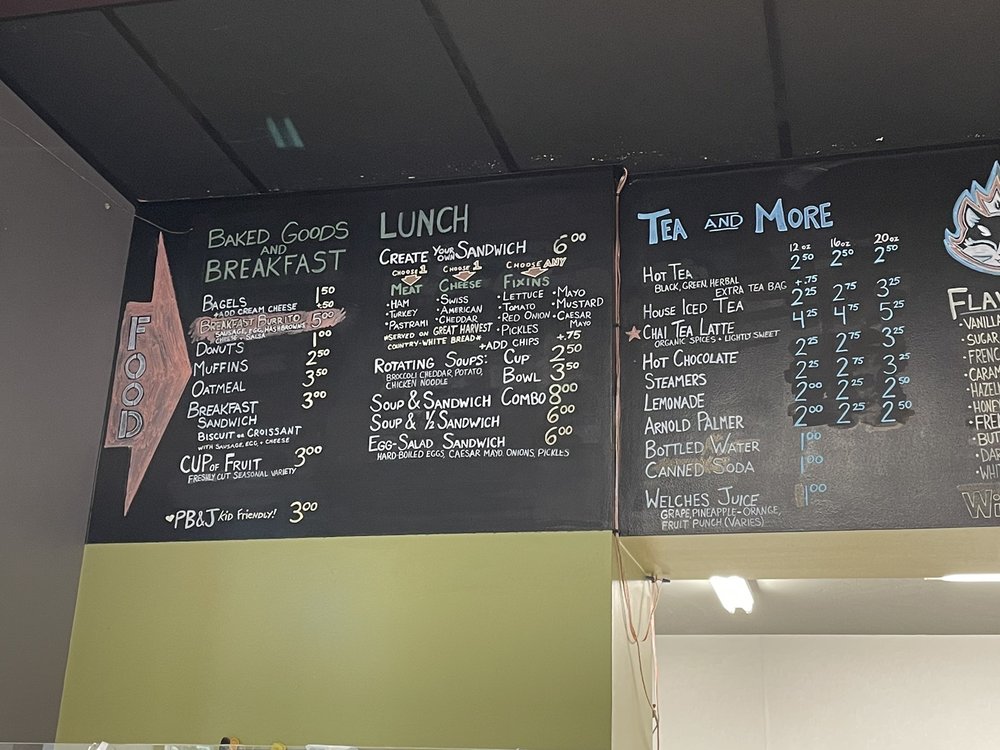 FOOD
BAKED GOODS
AND
BREAKFAST
BAGELS 1.50
+ADD CREAM CHEESE +.50
BREAKFAST BURRITO 5.00
SAUSAGE, EGG, HASHBROWNS
CHEESE + SALSA
DONUTS 1.00
MUFFINS 2.50
OATMEAL 3.50
BREAKFAST 3.00
SANDWICH
BISCUIT OR CROISSANT
WITH SAUSAGE, EGG, + CHEESE
CUP OF FRUIT 3.00
FRESHLY CUT SEASONAL VARIETY
PB&J KID FRIENDLY! 3.00
LUNCH
CREATE YOUR OWN SANDWICH 6.00
CHOOSE 1 CHOOSE 1 CHOOSE ANY
MEAT CHEESE FIXINS
•HAM •SWISS •LETTUCE •MAYO
•TURKEY •AMERICAN •TOMATO •MUSTARD
•PASTRAMI •CHEDDAR •RED ONION •CAESAR
MAYO
*SERVED ON GREAT HARVEST •PICKLES
COUNTRY-WHITE BREAD* +ADD CHIPS +.75
ROTATING SOUPS: CUP 2.50
BROCCOLI CHEDDAR, POTATO,
CHICKEN NOODLE BOWL 3.50
SOUP & SANDWICH COMBO 8.00
SOUP & 1/2 SANDWICH 6.00
EGG-SALAD SANDWICH 6.00
HARD-BOILED EGGS, CAESAR MAYO, ONIONS, PICKLES
TEA AND MORE
12oz 16oz 20oz
HOT TEA 2.50 2.50 2.50
BLACK, GREEN, HERBAL EXTRA TEA BAG +.75
HOUSE ICED TEA 2.25 2.75 3.25
CHAI TEA LATTE 4.25 4.75 5.25
ORGANIC SPICES + LIGHTLY SWEET
HOT CHOCOLATE 2.25 2.75 3.25
STEAMERS 2.25 2.75 3.25
LEMONADE 2.25 2.25 2.50
ARNOLD PALMER 2.00 2.25 2.50
BOTTLED WATER 1.00
CANNED SODA 1.00
WELCHES JUICE 1.00
GRAPE, PINEAPPLE-ORANGE,
FRUIT PUNCH (VARIES)